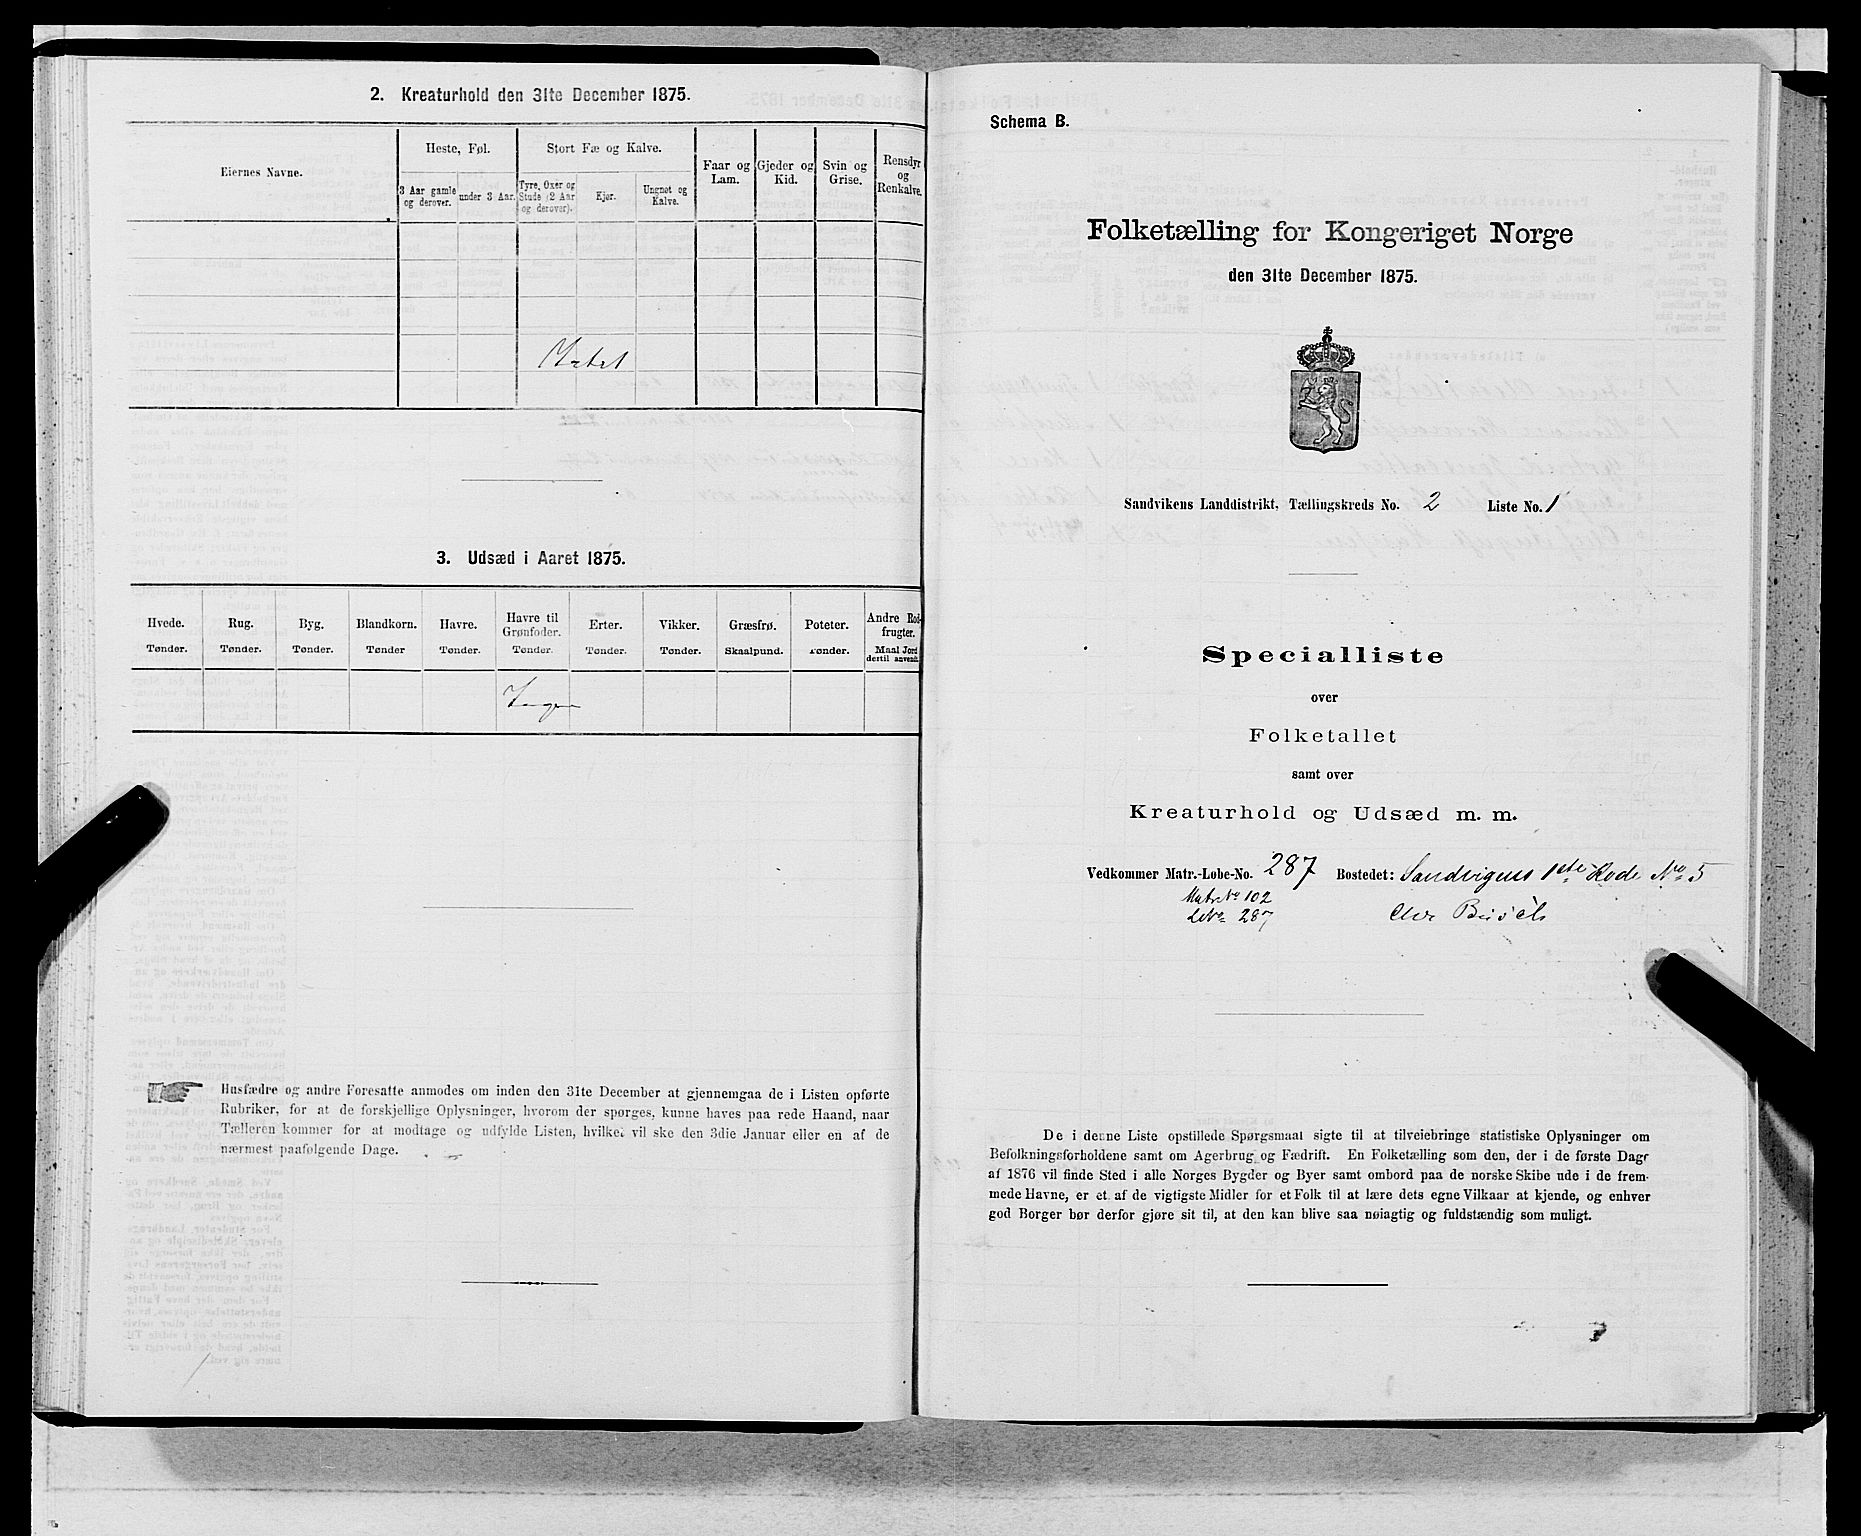 2. Kreaturhold den 31te December 1875.
Eiernes Navne.
Heste, Føl.
Stort Fæ og Kalve.
Faar og Lam.
Gjeder og Kid.
Svin og Grise.
Rensdyr og Renkalve.
3 Aar gamle og derover.
under 3 Aar.
Tyre, Oxer og Stude (2 Aar og derover).
Kjør.
Ungnøt og Kalve.
Intet
3. Udsæd i Aaret 1875.
Hvede. Rug. Byg. Blandkorn. Havre. Havre til Grønfoder. Erter. Vikker. Græsfrø. Poteter. Andre Rodfrugter.
Tønder. Tønder. Tønder. Tønder Tønder. Tønder. Tønder. Tønder. Skaalpund. Tønder. Maal Jord dertil anvendt.
Ingen
Husfædre og andre Foresatte anmodes om inden den 31te December at gjennemgaa de i Listen opførte
Rubriker, for at de forskjellige Oplysninger, hvorom der spørges, kunne haves paa rede Haand, naar
Tælleren kommer for at modtage og udfylde Listen, hvilket vil ske den 3die Januar eller en af de
nærmest paafølgende Dage.
Schema B.
Folketælling for Kongeriget Norge
den 31te December 1875.
Sandvikens Landdistrikt, Tællingskreds No. 2 Liste No. 1
Specialliste
over
Folketallet
samt over
Kreaturhold og Udsæd m. m.
Vedkommer Matr.-Løbe-No. 287 Bostedet: Sandvigens 1ste Rode No 5
Matr No 102
LNo 287
De i denne Liste opstillede Spørgsmaal sigte til at tilveiebringe statistiske Oplysninger om
Befolkningsforholdene samt om Agerbrug og Fædrift. En Folketælling som den, der i de første Dage
af 1876 vil finde Sted i alle Norges Bygder og Byer samt ombord paa de norske Skibe ude i de frem-
mede Havne, er et af de vigtigste Midler for et Folk til at lære dets egne Vilkaar at kjende, og enhver
god Borger bør derfor gjøre sit til, at den kan blive saa nøiagtig og fuldstændig som muligt.